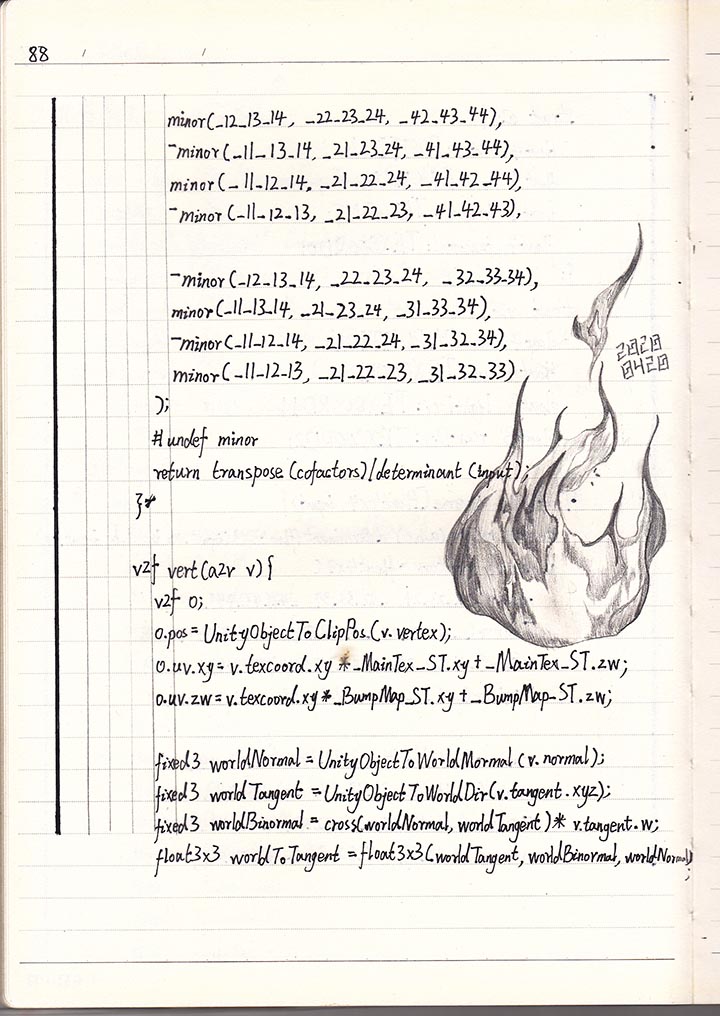 88
minor(_12_13_14, _22_23_24, _42_43_44),
-minor(_11_13_14, _21_23_24, _41_43_44),
minor(_11_12_14, _21_22_24, _41_42_44),
-minor(_11_12_13, _21_22_23, _41_42_43),
-minor(_12_13_14, _22_23_24, _32_33_34),
minor(_11_13_14, _21_23_24, _31_33_34),
-minor(_11_12_14, _21_22_24, _31_32_34),
minor(_11_12_13, _21_22_23, _31_32_33)
2020
0420
);
#undef minor
return transpose(cofactors)/determinant(input);
}*
v2f vert(a2v v){
v2f o;
o.pos = UnityObjectToClipPos(v.vertex);
o.uv.xy = v.texcoord.xy * _MainTex_ST.xy + _MainTex_ST.zw;
o.uv.zw = v.texcoord.xy * _BumpMap_ST.xy + _BumpMap_ST.zw;
fixed3 worldNormal = UnityObjectToWorldMormal(v.normal);
fixed3 worldTangent = UnityObjectToWorldDir(v.tangent.xyz);
fixed3 worldBinormal = cross(worldNormal, worldTangent) * v.tangent.w;
float3x3 worldToTangent = float3x3(worldTangent, worldBinormal, worldNormal);